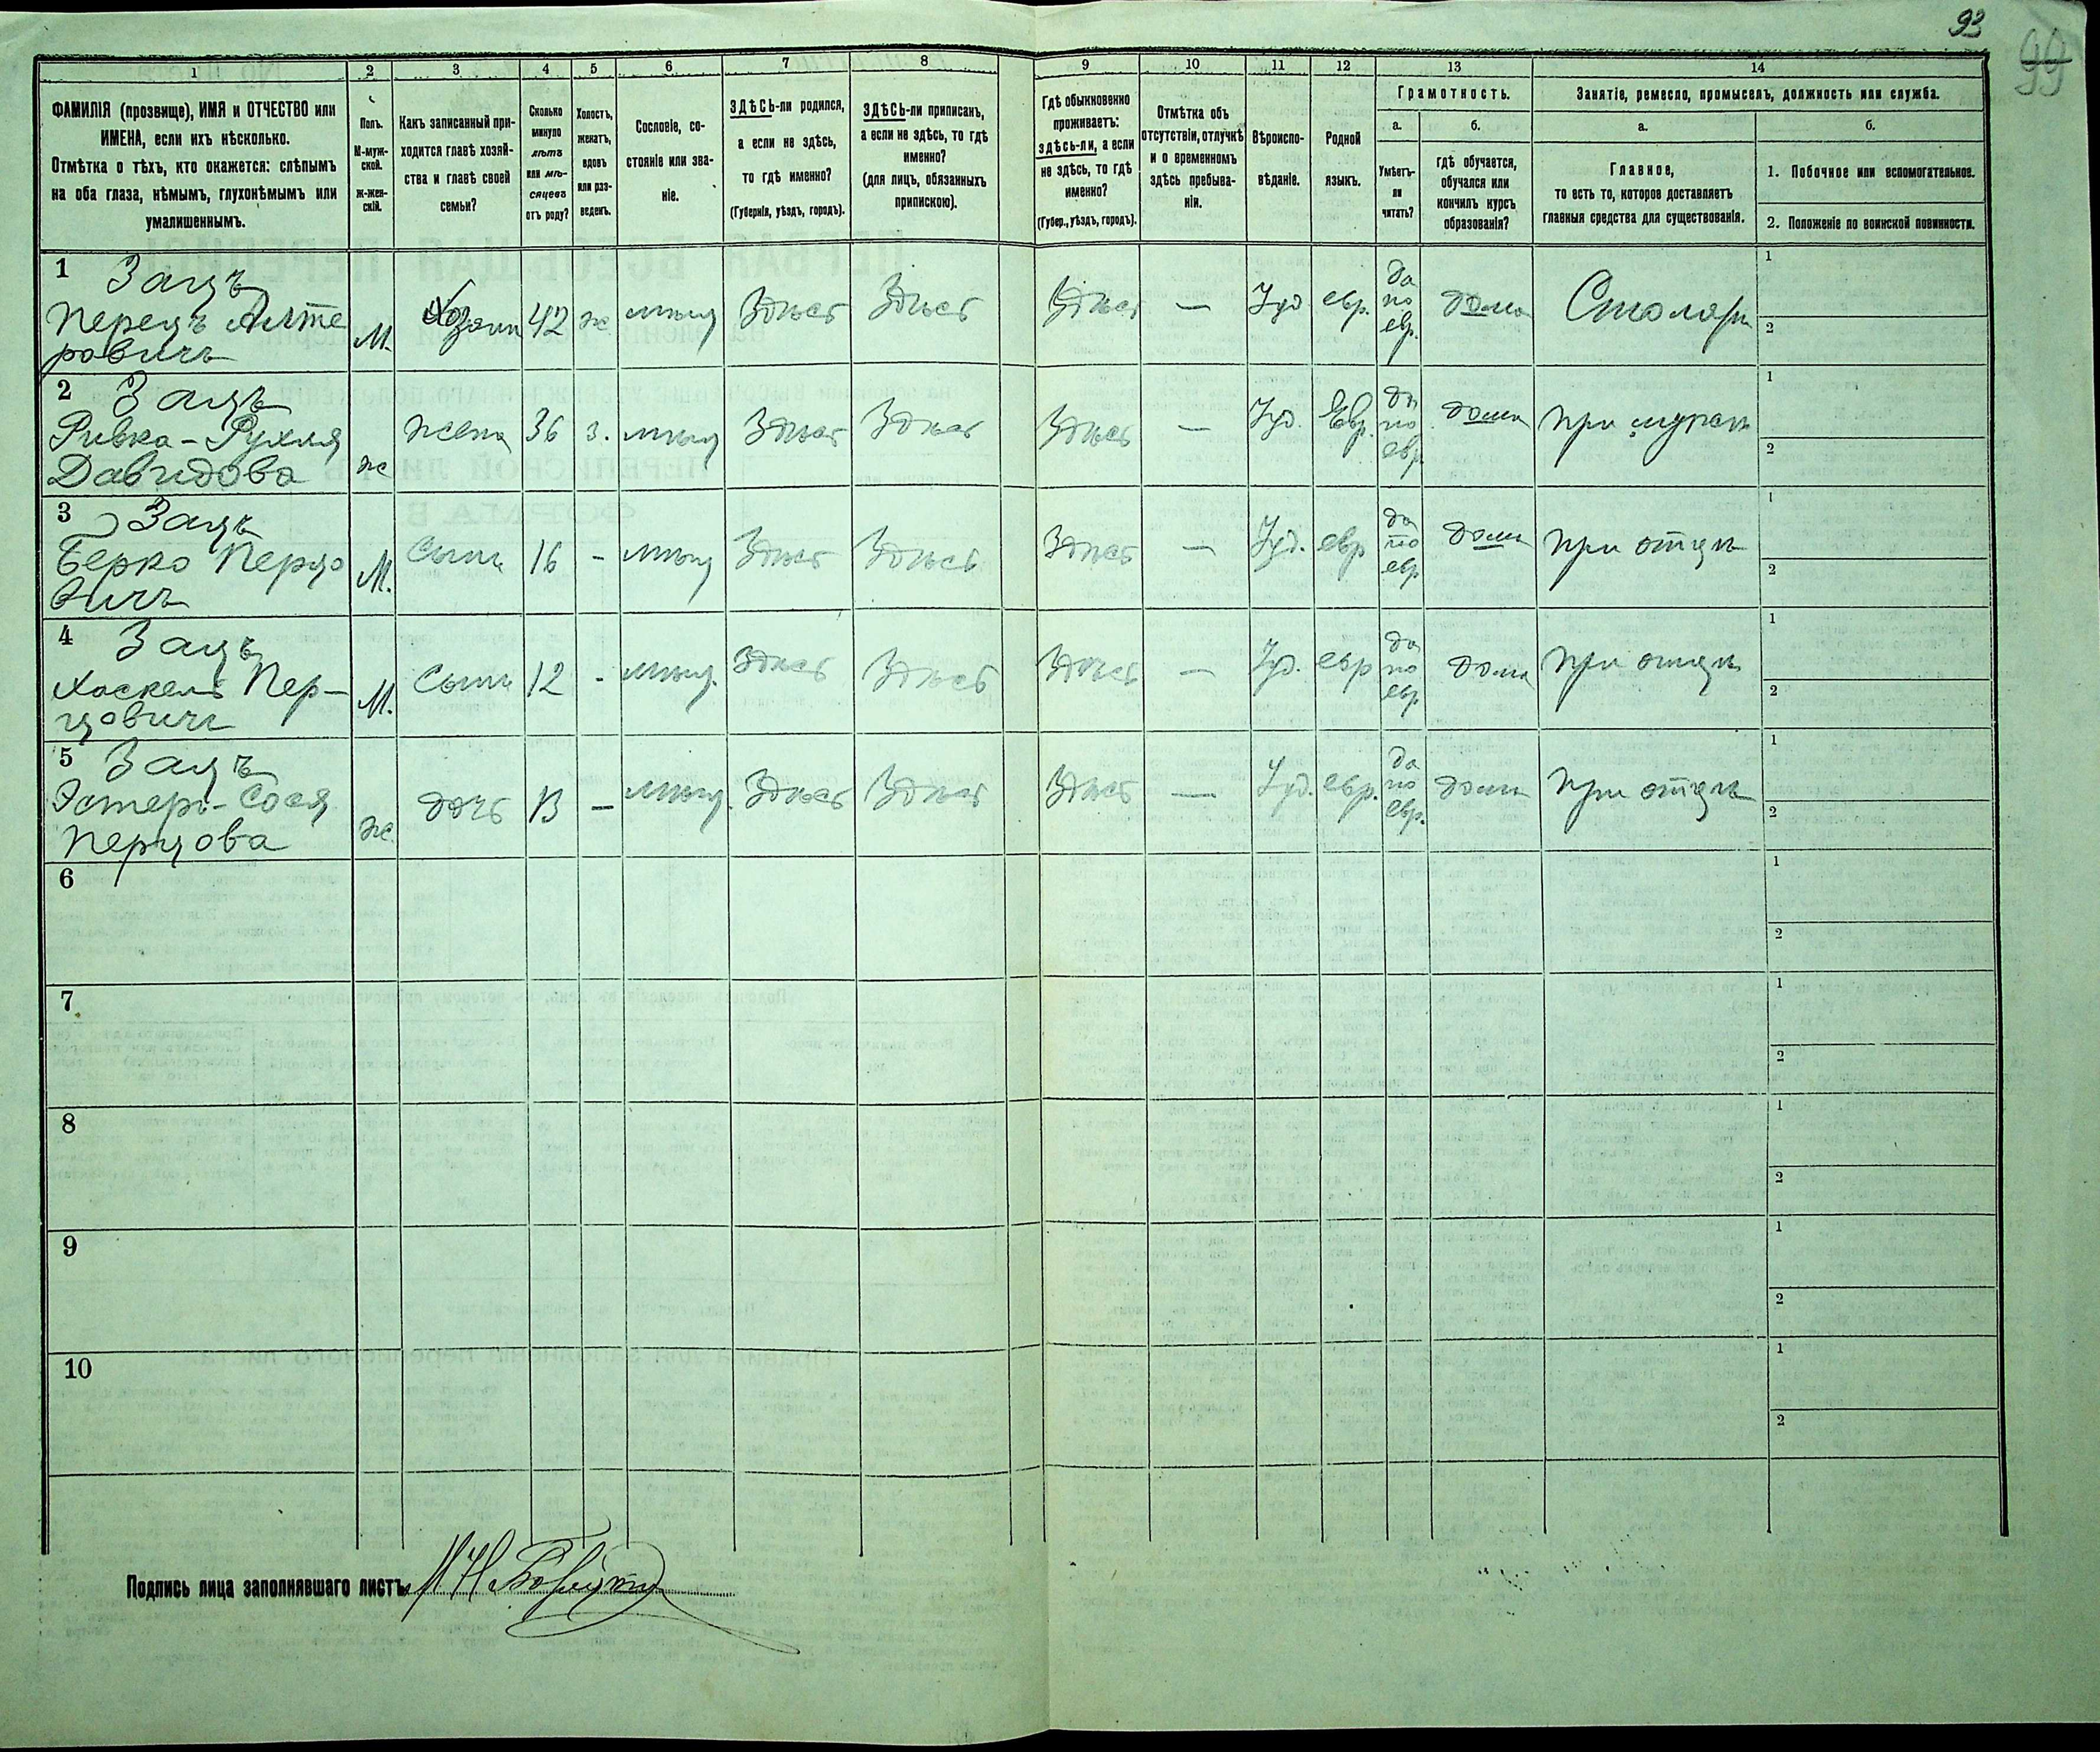 93
99
1 2 3 4 5 6 7 8 9 10 11 12 13 14
ФАМИЛІЯ (прозвище), ИМЯ и ОТЧЕСТВО или
ИМЕНА, если ихъ нѣсколько.
Отмѣтка о тѣхъ, кто окажется: слѣпымъ
на оба глаза, нѣмымъ, глухонѣмымъ или
умалишеннымъ.
Полъ.
М-муж-
ской.
Ж-жен-
скій.
Какъ записанный при-
ходится главѣ хозяй-
ства и главѣ своей
семьи?
Сколько
минуло
лѣтъ
или мѣ-
сяцевъ
отъ роду?
Холостъ,
женатъ,
вдовъ
или раз-
веденъ.
Сословіе, со-
стояніе или зва-
ніе.
ЗДѢСЬ-ли родился,
а если не здѣсь,
то гдѣ именно?
(Губернія, уѣздъ, городъ).
ЗДѢСЬ-ли приписанъ,
а если не здѣсь, то гдѣ
именно?
(для лицъ, обязанныхъ
припискою).
Гдѣ обыкновенно
проживаетъ:
здѣсь-ли, а если
не здѣсь, то гдѣ
именно?
(Губер., уѣздъ, городъ).
Отмѣтка объ
отсутствіи, отлучкѣ
и о временномъ
здѣсь пребыва-
ніи.
Вѣроиспо-
вѣданіе.
Родной
языкъ.
Грамотность.
а.
Умѣетъ-
ли
читать?
б.
гдѣ обучается,
обучался или
кончилъ курсъ
образованія?
Занятіе, ремесло, промыселъ, должность или служба.
а.
Главное,
то есть то, которое доставляетъ
главныя средства для существованія.
б.
1. Побочное или вспомогательное.
2. Положеніе по воинской повинности.
1 Зацъ
Перецъ Алте
ровичъ
М. Хозяин 42 ж мѣщ Здѣсь Здѣсь Здѣсь — Іуд евр. да
по
евр. дома Столяръ
1
2
2 Зацъ
Ривка-Рухля
Давидова
ж жена 36 з. мѣщ Здѣсь Здѣсь Здѣсь — Іуд. Евр. да
по
евр. дома при мужѣ
1
2
3 Зацъ
Берко Перцо
вичъ
М. Сынъ 16 - мѣщ Здѣсь Здѣсь Здѣсь — Іуд. евр да
по
евр дома при отцѣ
1
2
4 Зацъ
Хаскель Пер-
цовичъ
М. Сынъ 12 - мѣщ. Здѣсь Здѣсь Здѣсь — Іуд. евр да
по
евр. дома при отцѣ
1
2
5 Зацъ
Эстеръ-Сося
Перцова
ж дочь 13 — мѣщ. Здѣсь Здѣсь Здѣсь — Іуд. евр. да
по
евр. дома при отцѣ
1
2
6
1
2
7
1
2
8
1
2
9
1
2
10
1
2
Подпись лица заполнявшаго листъ